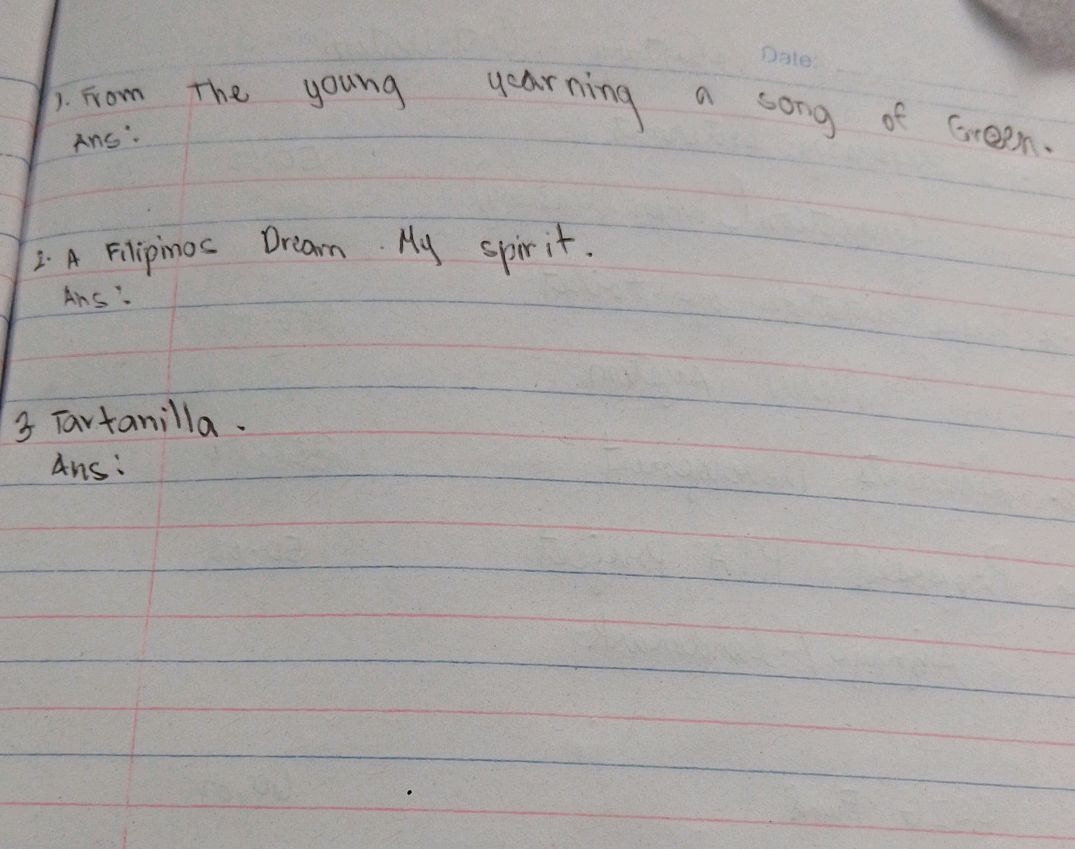 Date:
1. From The young yearning a song of Green.
Ans:
2. A Filipinos Dream. My spirit.
Ans:
3 Tartanilla.
Ans: